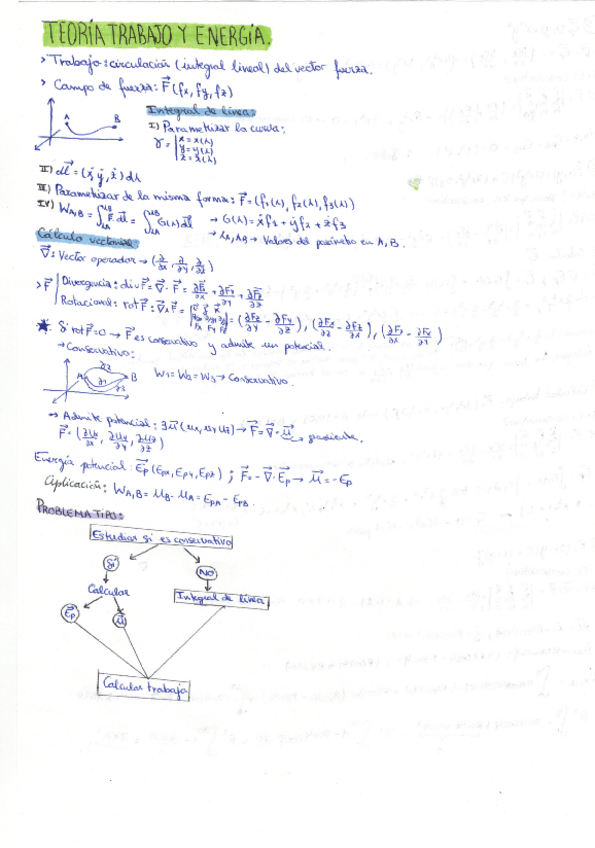 TEORÍA TRABAJO Y ENERGÍA.
> Trabajo: circulación (integral lineal) del vector fuerza.
> Campo de fuerza: F⃗ (fx, fy, fz)
Integral de línea:
A B
I) Parametrizar la curva:
γ = | x = x(λ)
y = y(λ)
z = z(λ)
II) dl⃗ = (ẋ, ẏ, ż) dλ
III) Parametrizar de la misma forma: F⃗ = (f1(λ), f2(λ), f3(λ))
IV) W A,B = ∫ F⃗ dl⃗ = ∫ G(λ) dλ → G(λ) = ẋf1 + ẏf2 + żf3
→ λA, λB → Valores del parámetro en A, B.
Cálculo vectorial:
∇⃗: Vector operador → (∂/∂x, ∂/∂y, ∂/∂z)
> F⃗ | Divergencia: div F⃗ = ∇⃗ · F⃗ = ∂Fx/∂x + ∂Fy/∂y + ∂Fz/∂z
Rotacional: rot F⃗ : ∇⃗ x F⃗ = = (∂Fz/∂y - ∂Fy/∂z), (∂Fx/∂z - ∂Fz/∂x), (∂Fy/∂x - ∂Fx/∂y)
Si rot F⃗ = 0 → F⃗ es conservativo y admite un potencial.
→ Conservativo:
A B γ2 γ1 γ3
W1 = W2 = W3 → Conservativo.
→ Admite potencial: ∃ u⃗ (ux, uy, uz) → F⃗ = ∇⃗ · u⃗
F⃗ = (∂ux/∂x, ∂uy/∂y, ∂uz/∂z)
Energía potencial: E⃗p (Epx, Epy, Epz) ; F⃗ = - ∇⃗ · Ep → u⃗ = -Ep
Aplicación: W A,B = uB - uA = EpA - EpB.
PROBLEMA TIPO:
Estudiar si es conservativo
Sí
NO
Calcular
Integral de línea
Ep
u⃗
Calcular trabajo